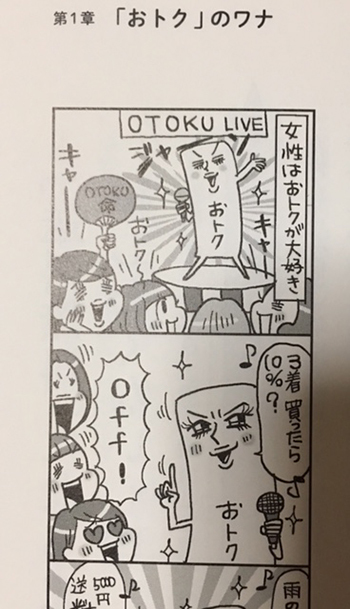 第1章 「おトク」のワナ
女性はおトクが大好き
OTOKU LIVE
ジャーン
キャー
おトク
おトク
キャー
OTOKU
命
3着買ったら
10%?
おトク
Off!
雨の
5000
円
送料